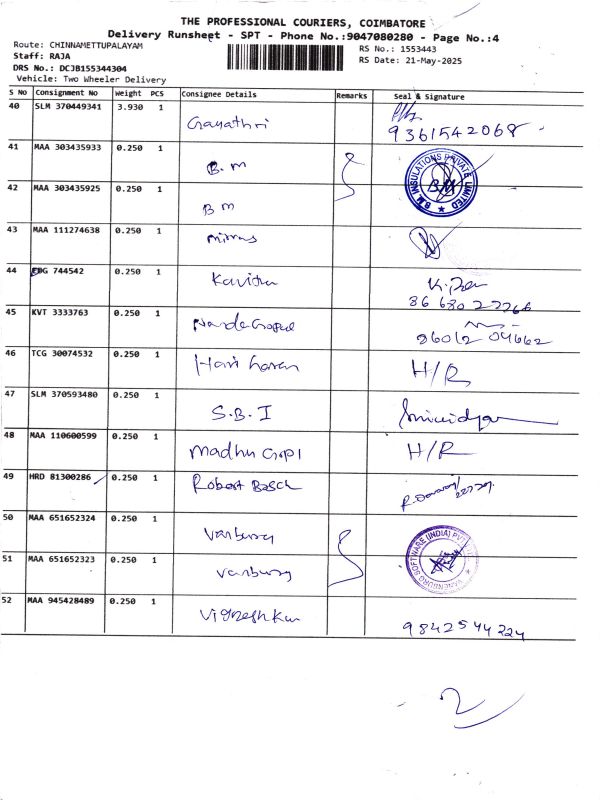 THE PROFESSIONAL COURIERS, COIMBATORE
Delivery Runsheet - SPT - Phone No.:9047080280 - Page No.:4
Route: CHINNAMETTUPALAYAM
RS No.: 1553443
Staff: RAJA
RS Date: 21-May-2025
DRS No.: DCJB155344304
Vehicle: Two Wheeler Delivery
S No Consignment No Weight PCS Consignee Details Remarks Seal & Signature
40 SLM 370449341 3.930 1 Gayathri 9361542068
41 MAA 303435933 0.250 1 B.M
B.M. INSULATIONS PRIVATE LIMITED
42 MAA 303435925 0.250 1 BM
43 MAA 111274638 0.250 1
44 744542 0.250 1 Kavitha
45 KVT 3333763 0.250 1
46 TCG 30074532 0.250 1 Hari haran H/R
47 SLM 370593480 0.250 1 S.B.I
48 MAA 110600599 0.250 1 Madhu Gopl H/R
49 HRD 81300286 0.250 1 Robert Bosch
50 MAA 651652324 0.250 1
VANENBURG SOFTWARE (INDIA) PVT LTD
51 MAA 651652323 0.250 1
52 MAA 945428489 0.250 1 9842544224